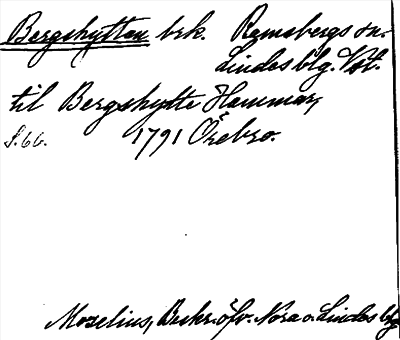 Bergshyttan brk. Ramsbergs sn.
Lindes blg. Vst.
til Bergshytte Hammar,
S. 66. 1791 Örebro.
Moselius, Beskr. öfv. Nora o. Lindes blg